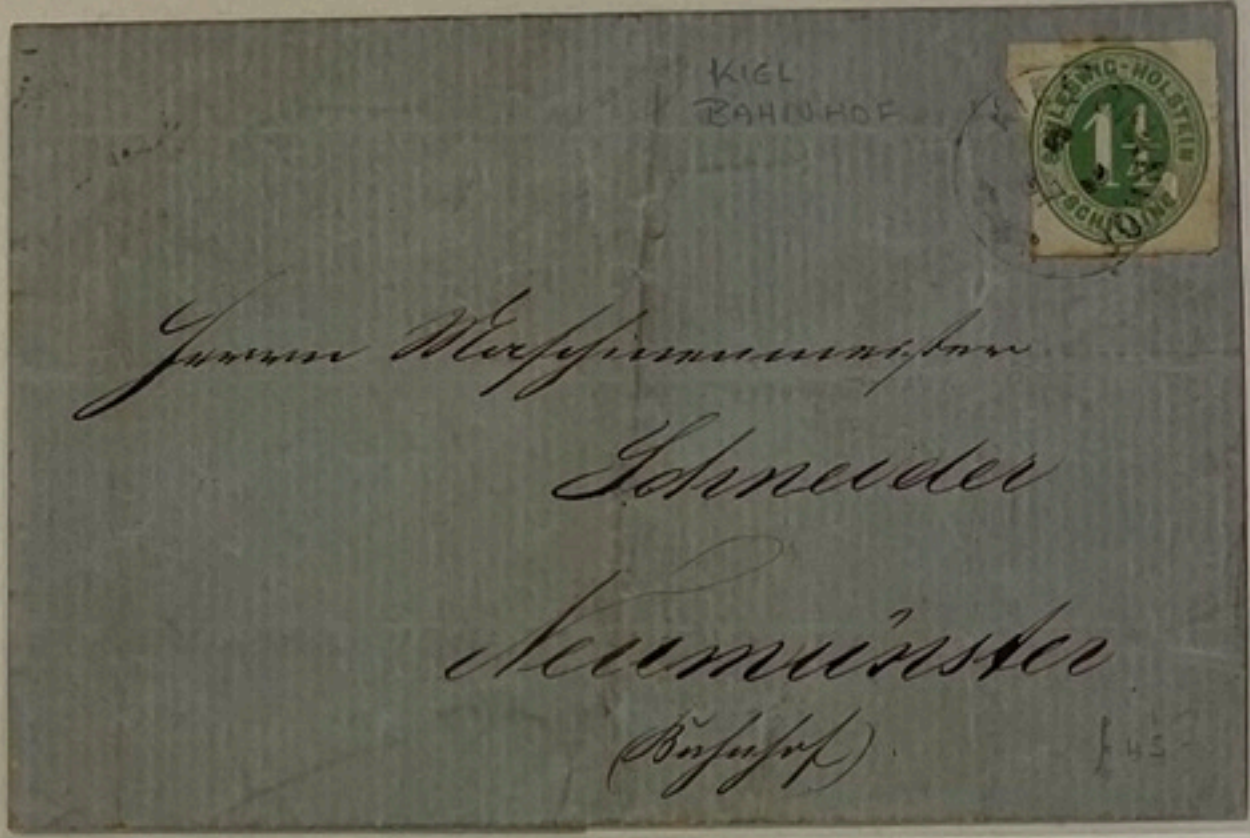 KIEL
BAHNHOF
SCHLESWIG-HOLSTEIN
1½
SCHILLING
Herrn Maschinenmeister
Schneider
Neumünster
(Bahnhof).